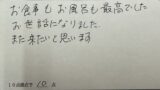 お食事もお風呂も最高でした
お世話になりました。
また来たいと思います
10点満点で 10 点